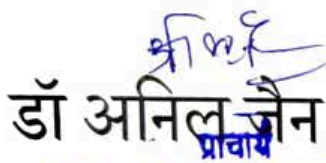 डॉ अनिल जैन
प्राचार्य